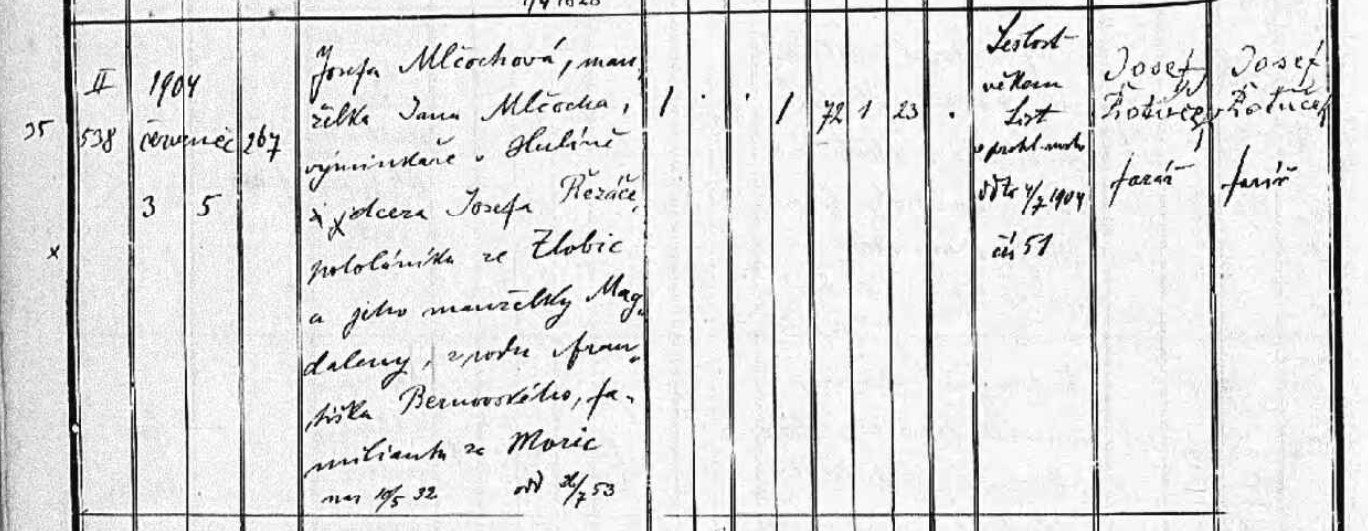 35
II
538
1904
červenec
3 5
267
Josefa Mlčochová, man-
želka Jana Mlčocha,
výminkáře v Hulíně
x dcera Josefa Řezáče,
pololáníka ze Zlobic
a jeho manželky Mag-
daleny, z rodu Fran-
tiška Bernovského, fa-
milianta z Moric
nar 10/5 32 odd 26/7 53
1 . . 1 72 1 23 .
Sešlost
věkem
List
o prohl.
ddto 4/7 1904
čís 51
Josef
farář
Josef
farář
x